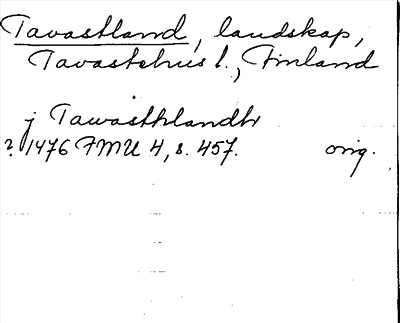 Tavastland, landskap,
Tavastehus l., Finland
j Tawasthlandh
? 1476 FMU 4, s. 457. orig.